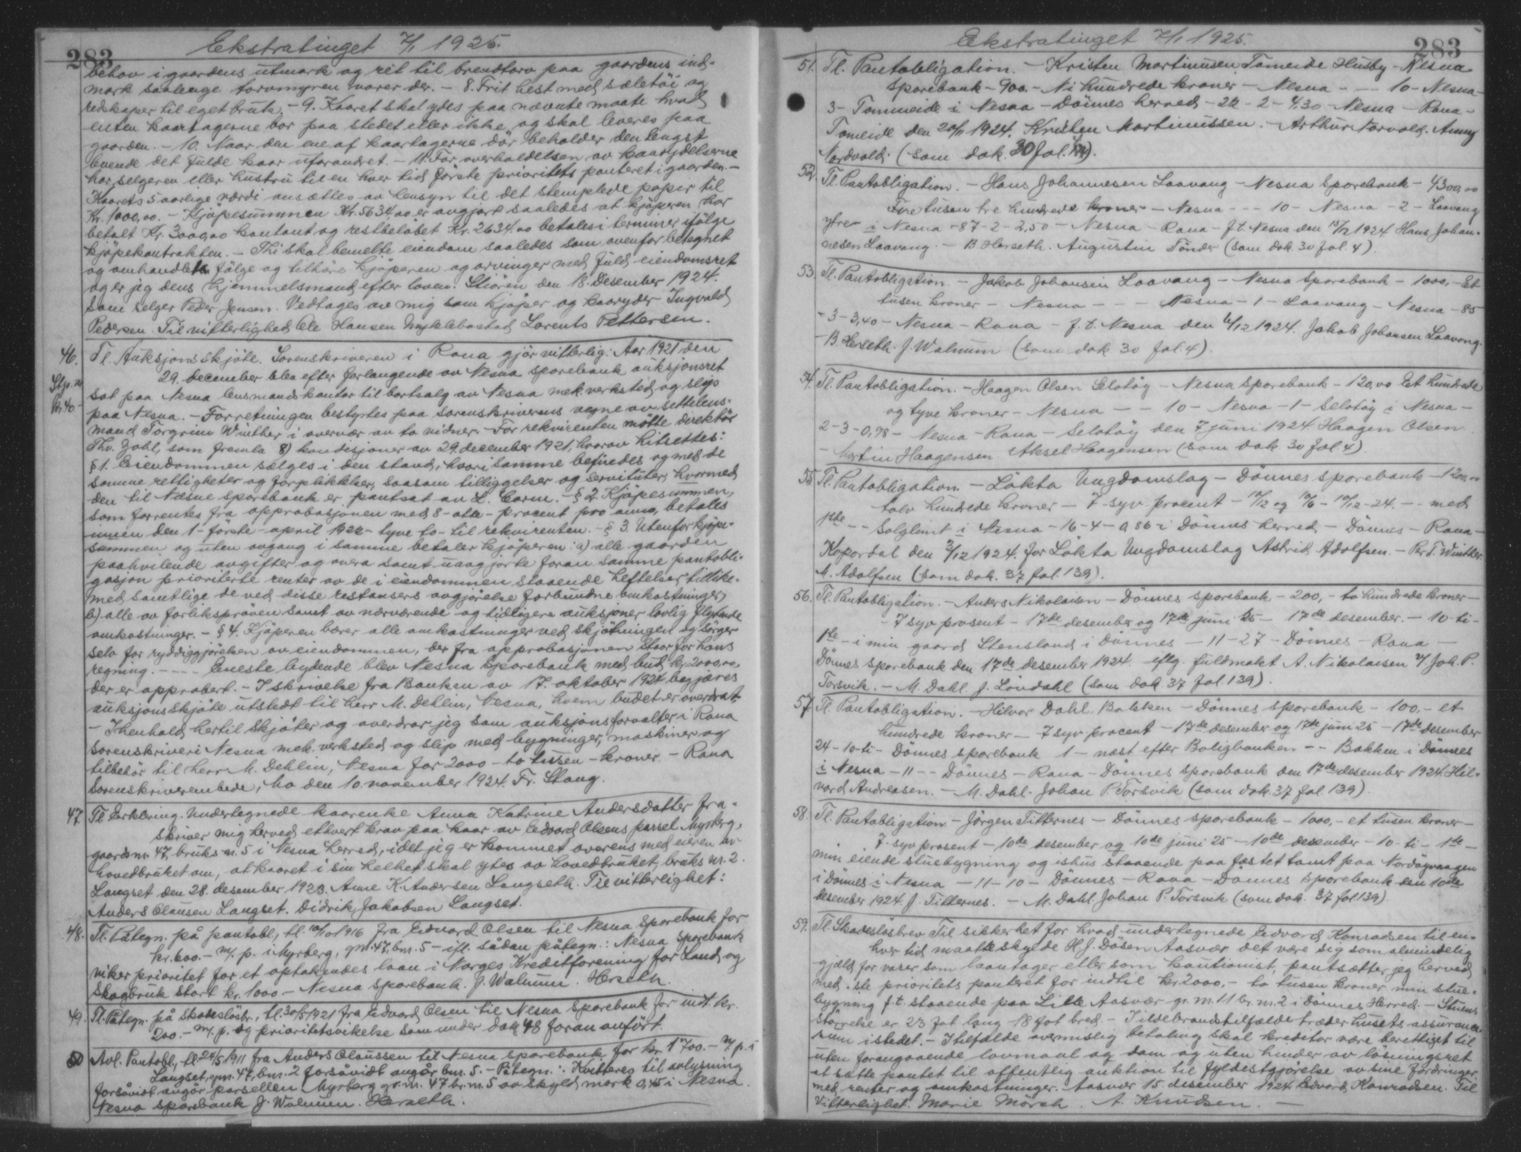 283
Ekstratinget 7/1 1925.
behov i gaardens utmark og ret til brendtorv paa gaardens ind-
mark saalenge torvmyren varer der. - 8. Frit hest med sæletöi og
redskaper til eget bruk. - 9. Kaaret skal ydes paa nævnte maate hvad
enten kaartagerne bor paa stedet eller ikke, og skal leveres paa
gaarden. - 10. Naar den ene af kaartagerne dör beholder den lengst
levende det fulde kaar uforandret. - 11. For overholdelsen av kaarydelserne
har selgeren eller hustru til en hver tid förste prioritets panteret i gaarden. -
Kaarets 5 aarlige værdi ansættes av hensyn til det stemplede papir til
Kr. 1000,00. - Kjöpesummen Kr. 5634,00 er avgjort saaledes at kjöperen har
betalt Kr. 3000,00 kontant og restbelöbet Kr. 2634,00 betales i terminer ifölge
kjöpekontrakten. - Thi skal bemelte eiendom saaledes som ovenfor betegnet
og omhandlet fölge og tilhöre kjöperen og arvinger med fuld eiendomsret
og er jeg dens hjemmelsmand efter loven. den 18. Desember 1924.
Som selger Peder Jensen. Vedtages av mig som kjöper og kaaryder Ingvald
Pedersen. Til vitterlighed Ole Hansen Myklebostad Lorents Pettersen.
46. Tl. Auksjonsskjöte. Sorenskriveren i Rana gjör vitterlig: Aar 1921 den
29. december blev efter forlangende av Nesna sporebank auksjonsret
Stp.
Kr. 40.- sat paa Nesna lensmandskontor til bortsalg av Nesna mek. verksted og slip
paa Nesna. - Forretningen bestyrtes paa sorenskriverens vegne av settelens-
mand Torgrim Winther i overvær av to vidner. For rekvirenten mötte direktör
Thv. Zahl, som fremla 8) kondisjoner av 29. december 1921, hvorav hitsettes:
§ 1. Eiendommen selges i den stand, hvori samme befindes og med de
samme rettigheter og forpliktelser, saasom tilliggelser og servituter, hvormed
den til Nesna sporebank er pantsat av L. - § 2. Kjöpesummen,
som forrentes fra approbasjonen med 8 - otte - procent pro anno, betales
innen den 1 - förste - april 1922 - tyve to - til rekvirenten. - § 3. Utenfor kjöpe-
summen og uten avgang i samme betaler kjöperen: a) alle gaarden
paahvilende avgifter og övra samt uavgjorte foran samme pantobli-
gasjon prioriterte renter av de i eiendommen staaende heftelser tillike-
med samtlige de ved disse restansers avgjörelse forbundne omkostninger,
b) alle av forlikspröven samt av nærværende og tidligere auksjoner lovlig flytende
omkostninger. - § 4. Kjöperen bærer alle omkostninger ved skjötningen og sörger
selv for ryddiggjörelsen av eiendommen, der fra approbasjonen staar for hans
regning. - - - - Eneste bydende blev Nesna Sporebank med bud kr. 2000,00,
der er approbert. - I skrivelse fra Banken av 17. oktober 1924 begjæres
auksjonsskjöte utstedt til herr M. Dehlin, Nesna, hvem budet er overdrat.
- I henhold hertil skjöter og overdrar jeg som auksjonsforvalter i Rana
sorenskriveri Nesna mek. verksted og slip med bygninger, maskiner og
tilbehör til herr M. Dehlin, Nesna for 2000 - to tusen - kroner - Rana
Sorenskriverembede, Mo den 10. november 1924. Fr. Skaug.
47. Tl. Erklæring. Undertegnede kaarenke Anna Katrine Andersdatter fra-
skriver mig herved ethvert krav paa kaar av Edvard Olsens parsel Myrberg,
gaardsnr. 47, bruks nr. 5 i Nesna herred, idet jeg er kommet overens med eieren av
hovedbruket om, at kaaret i sin helhet skal ytes av hovedbruket, bruks nr. 2.
Langset den 28. desember 1923. Anne K. Andersen Langseth. Til vitterlighet:
Anders Clausen Langset. Didrik Jakobsen Langset.
48. Tl. Påtegn. på pantobl., tl. 1916 fra Edvard Olsen til Nesna Sporebank for
kr. 600.- m/ p. i Myrberg, gnr. 47, bnr. 5 - ifl. sådan påtegn.: Nesna Sporebank
viker prioritet for et optakendes laan i Norges Kreditforening for Land og
Skogbruk stort kr. 1000 - Nesna sporebank. J. Walnum. Herseth.
49. Tl. Påtegn. på Skadeslösbr., tl. 30/5 1921 fra Edvard Olsen til Nesna Sporebank for indt. kr.
200 - m/ p. og prioritetsvikelse som under dok 48 foran anfört.
50 Avl. Pantobl., tl. 29/5 1911 fra Anders Olaussen til Nesna sporebank for kr. 1700.- m/ p. i
Langset, gnr. 47, bnr. 2 forsåvidt angår bnr. 5. - Påtegn.: Kvitteres til avlysning
forsåvidt angår parsellen Myrberg gr. nr. 47 br. nr. 5 av skyld mark 0,45 i Nesna.
Nesna sporebank J. Walnum. Herseth.
Ekstratinget 7/1 1925.
283
51. Tl. Pantobligation. - Kristen Martinusen Tomeide Husby - Nesna
Sporebank - 900.- Ni hundrede kroner - Nesna - - - 10 - Nesna -
3 - Tommeide i Nesna - Dönnes herred - 22 - 2 - 4,30 - Nesna - Rana -
Tomeide den 20/11 1924. Kristen Martinussen. - Arthur Norvald. Anny
Nordvold. (som dok. 30 fol. ).
52. Tl. Pantobligation. - Hans Johannesen Laavang - Nesna Sporebank - 4300,00
Fire tusen tre hundrede kroner - Nesna - - - 10 - Nesna - 2 - Laavang
ytre i Nesna - 87 - 2 - 2,50 - Nesna - Rana - f.t. Nesna den 15/12 1924 Hans Johan-
nesen Laavang. - B. Herseth. Augustin Tönder (som dok. 30 fol. 4)
53. Tl. Pantobligation. - Jakob Johansen Laavang - Nesna Sporebank - 1000,- Et
tusen kroner - Nesna - - - Nesna - 1 - Laavang - Nesna - 85
- 3 - 3,40 - Nesna - Rana - f.t. Nesna den /12 1924. Jakob Johansen Laavang.
- B. Herseth. J. Walnum (som dok 30 fol 4)
54. Tl. Pantobligation. - Haagen Olsen Selotöy - Nesna Sporebank - 120,00 Et hundrede
og tyve kroner - Nesna - - 10 - Nesna - 1 - Selotöy i Nesna -
2 - 3 - 0,98 - Nesna - Rana - Selotöy den 7 juni 1924 Haagen Olsen
- Haagensen Aksel Haagensen (som dok 30 fol 4)
55. Tl. Pantobligation. - Lökta Ungdomslag - Dönnes sporebank - 1200,00
tolv hundrede kroner - 7 - syv procent - /12 og /6 - /12 - 24. - - med
pte - - Solglimt i Nesna - 16 - 4 - 0,86 i Dönnes herred - Dönnes - Rana -
Kopardal den /12 1924. for Lökta Ungdomslag Astrid Adolfsen. - Per T. Winther
M. Adolfsen (som dok. 37 fol. 139).
56. Tl. Pantobligation. - Anders Nikolaisen - Dönnes sporebank - 200,- to hundrede kroner -
- 7 syv prosent - 17de desember og 17de juni 25 - 17de desember. - 10 - ti -
1ste - i min gaard Stensland i Dönnes - 11 - 27 - Dönnes - Rana -
Dönnes sporebank den 17de desember 1924 - eftg. fuldmakt A. Nikolaisen v/ Joh. P.
Forsvik. - M. Dahl J. Lövdahl (som dok 37 fol 139).
57. Tl. Pantobligation. - Hilvar Dahl Bakken - Dönnes sporebank - 100,- et
hundrede kroner - 7 syv procent - 17de desember og 17de juni 25 - 17de desember
24 - 10 - ti - Dönnes sporebank 1 - næst efter Boligbanken - - Bakken i Dönnes
i Nesna - 11 - - Dönnes - Rana - Dönnes sporebank den 17de desember 1924. Hil-
vard Andreasen. - M. Dahl. Johan P. Forsvik (som dok 37 fol 139).
58. Tl. Pantobligation - Jörgen Titternes - Dönnes sporebank - 1000,- et tusen kroner -
7 - syv prosent - 10de desember og 10de juni 25 - 10de desember - 10 - ti - 1ste -
min eiende stuebygning og ishus staaende paa festet tomt paa Nordövaagen
i Dönnes i Nesna - 11 - 10 - Dönnes - Rana - Dönnes sporebank den 10de
desember 1924 J. Titternes. - M. Dahl Johan P. Forsvik (som dok. 37 fol 139).
59. Tl. Skadeslösbrev Til sikkerhet for hvad undertegnede Edvard Konradsen til en-
hver tid maatte skylde H.J. Dösen Aasvær det være sig som almindelig
gjæld for varer som laantager eller som kautionist, pantsætter jeg herved
med 1ste prioritets panteret for indtil kr. 2000,- to tusen kroner min stue-
bygning f.t. staaende paa Lille Aasvær gr. nr. 11 br. nr. 2 i Dönnes Herred. - Stuens
störrelse er 23 fot lang 18 fot bred. - I ildebrandstilfælde træder husets assurance-
sum istedet. - I tilfælde avmislig betaling skal kreditor være berettiget til
uten forangaaende lovmaal og dom og uten hinder av lösningsret
at sætte pantet til offentlig auktion til fyldestgjörelse av sine fordringer
med renter og omkostninger. Aasvær 15 desember 1924 Edvard Konradsen. Til
Vitterlighet: Marie Mörch. A. Knudsen. -